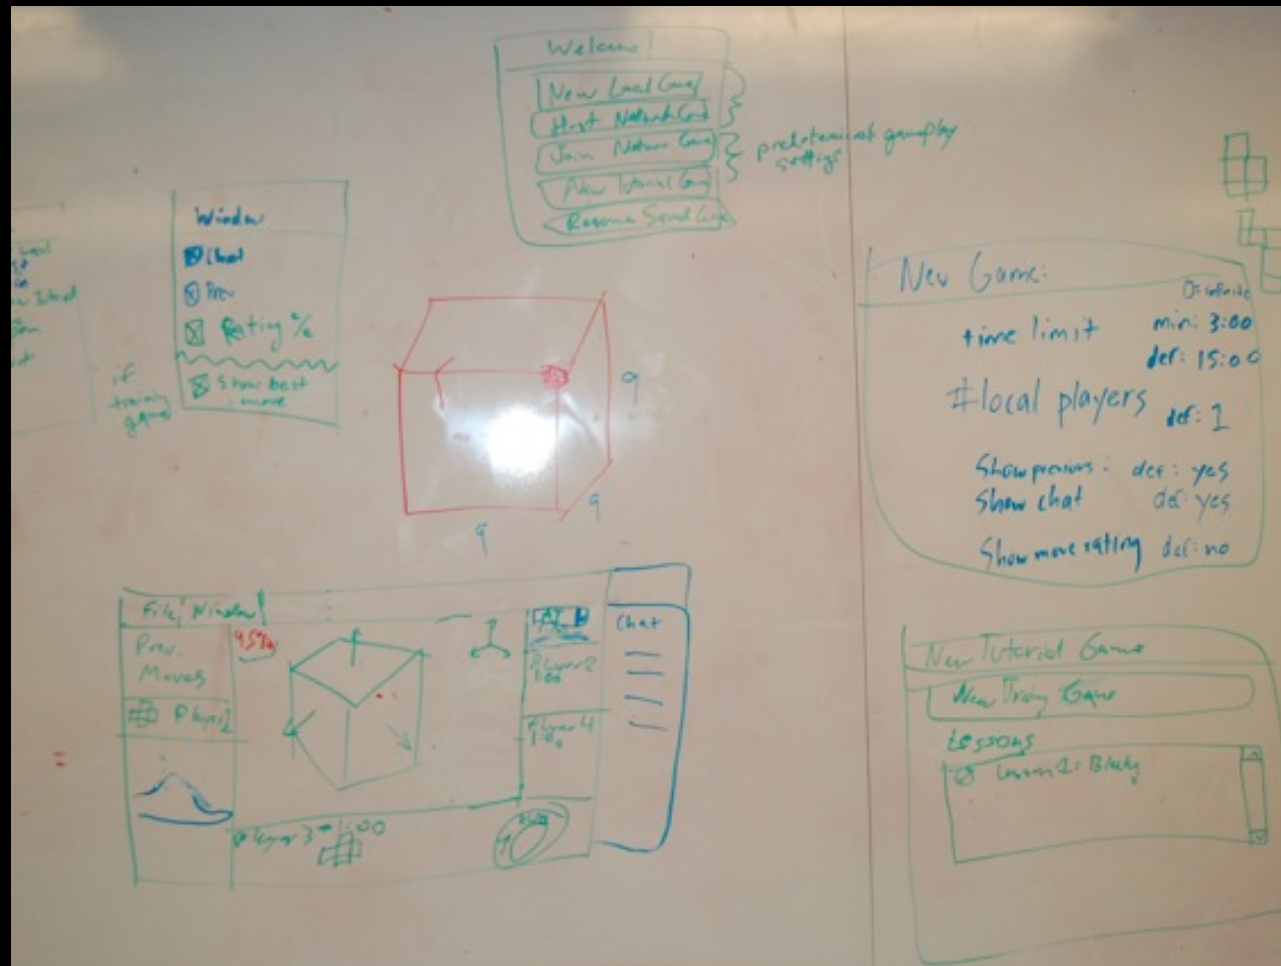 Welcome!
New Local Game
Host Network Game
Join Network Game
New Tutorial Game
Resume Saved Game
gameplay
settings
Window
Chat
Prev
Rating %
Show best
move
if
training
game
9
9
9
New Game:
0=infinite
time limit min: 3:00
def: 15:00
#local players def: 1
Show previous: def: yes
Show chat def: yes
Show move rating def: no
File Window
Prev.
Moves
95%
Player 2
Player 2
1:00
Player 4
1:00
Player 3 1:00
Chat
New Tutorial Game
New Training Game
Lessons
Lesson 1: